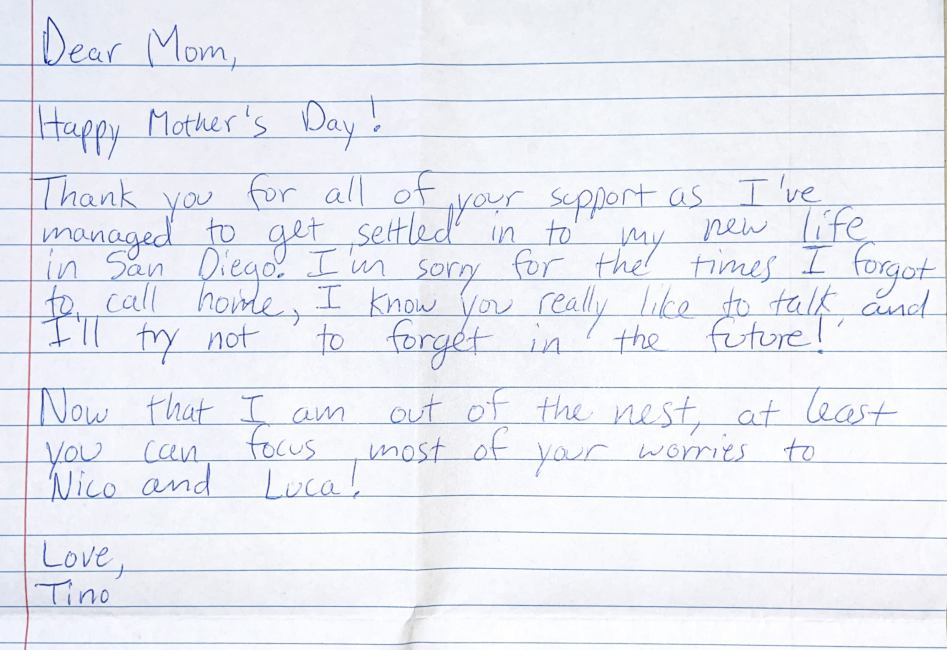 Dear Mom,
Happy Mother's Day!
Thank you for all of your support as I've
managed to get settled in to my new life
in San Diego. I'm sorry for the times I forgot
to call home, I know you really like to talk and
I'll try not to forget in the future!
Now that I am out of the nest, at least
you can focus most of your worries to
Nico and Luca!
Love,
Tino